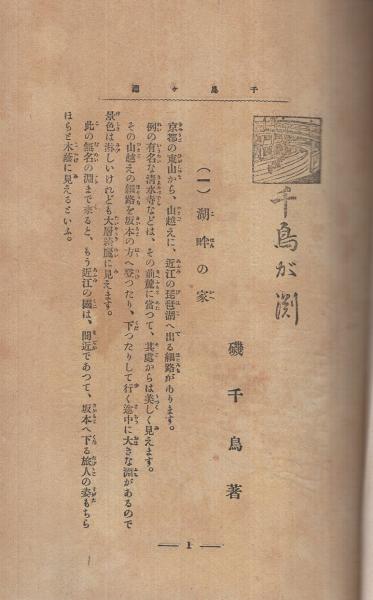 千鳥ヶ淵
千鳥が渕
磯千鳥著
(一)湖畔の家
京都の東山から、山越えに、近江の琵琶湖へ出る細路があります。
例の有名な清水寺などは、その前麓に当つて、其處からは美しく見えます。
その山越えの細路を坂本の方へ登つたり、下つたりして行く途中に大きな淵があるので
景色は淋しいけれども大層綺麗に見えます。
此の無名の淵まで来ると、もう近江の國は、間近であつて、坂本へ下る旅人の姿もちら
ほらと木蔭に見えるといふ。
1